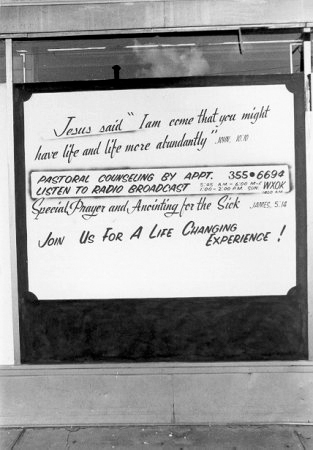 Jesus said "I am come that you might
have life and life more abundantly" JOHN. 10:10
PASTORAL COUNSELING BY APPT. 355•6694
LISTEN TO RADIO BROADCAST 5:45 A.M - 6:00 M-F
1:00 - 2:00 P.M. SUN. WXOK
Special Prayer and Anointing for the Sick JAMES. 5:14
JOIN US FOR A LIFE CHANGING
EXPERIENCE!